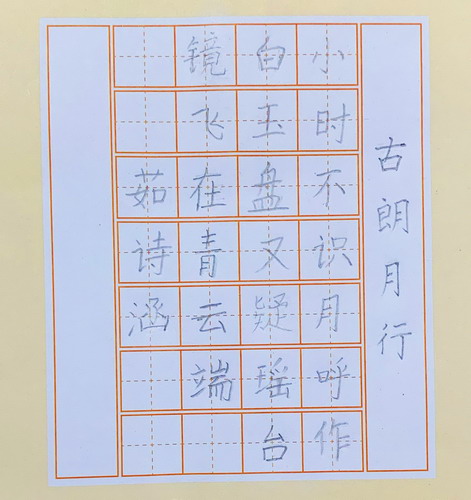 古朗月行
小时不识月呼作
白玉盘又疑瑶台
镜飞在青云端
茹诗涵